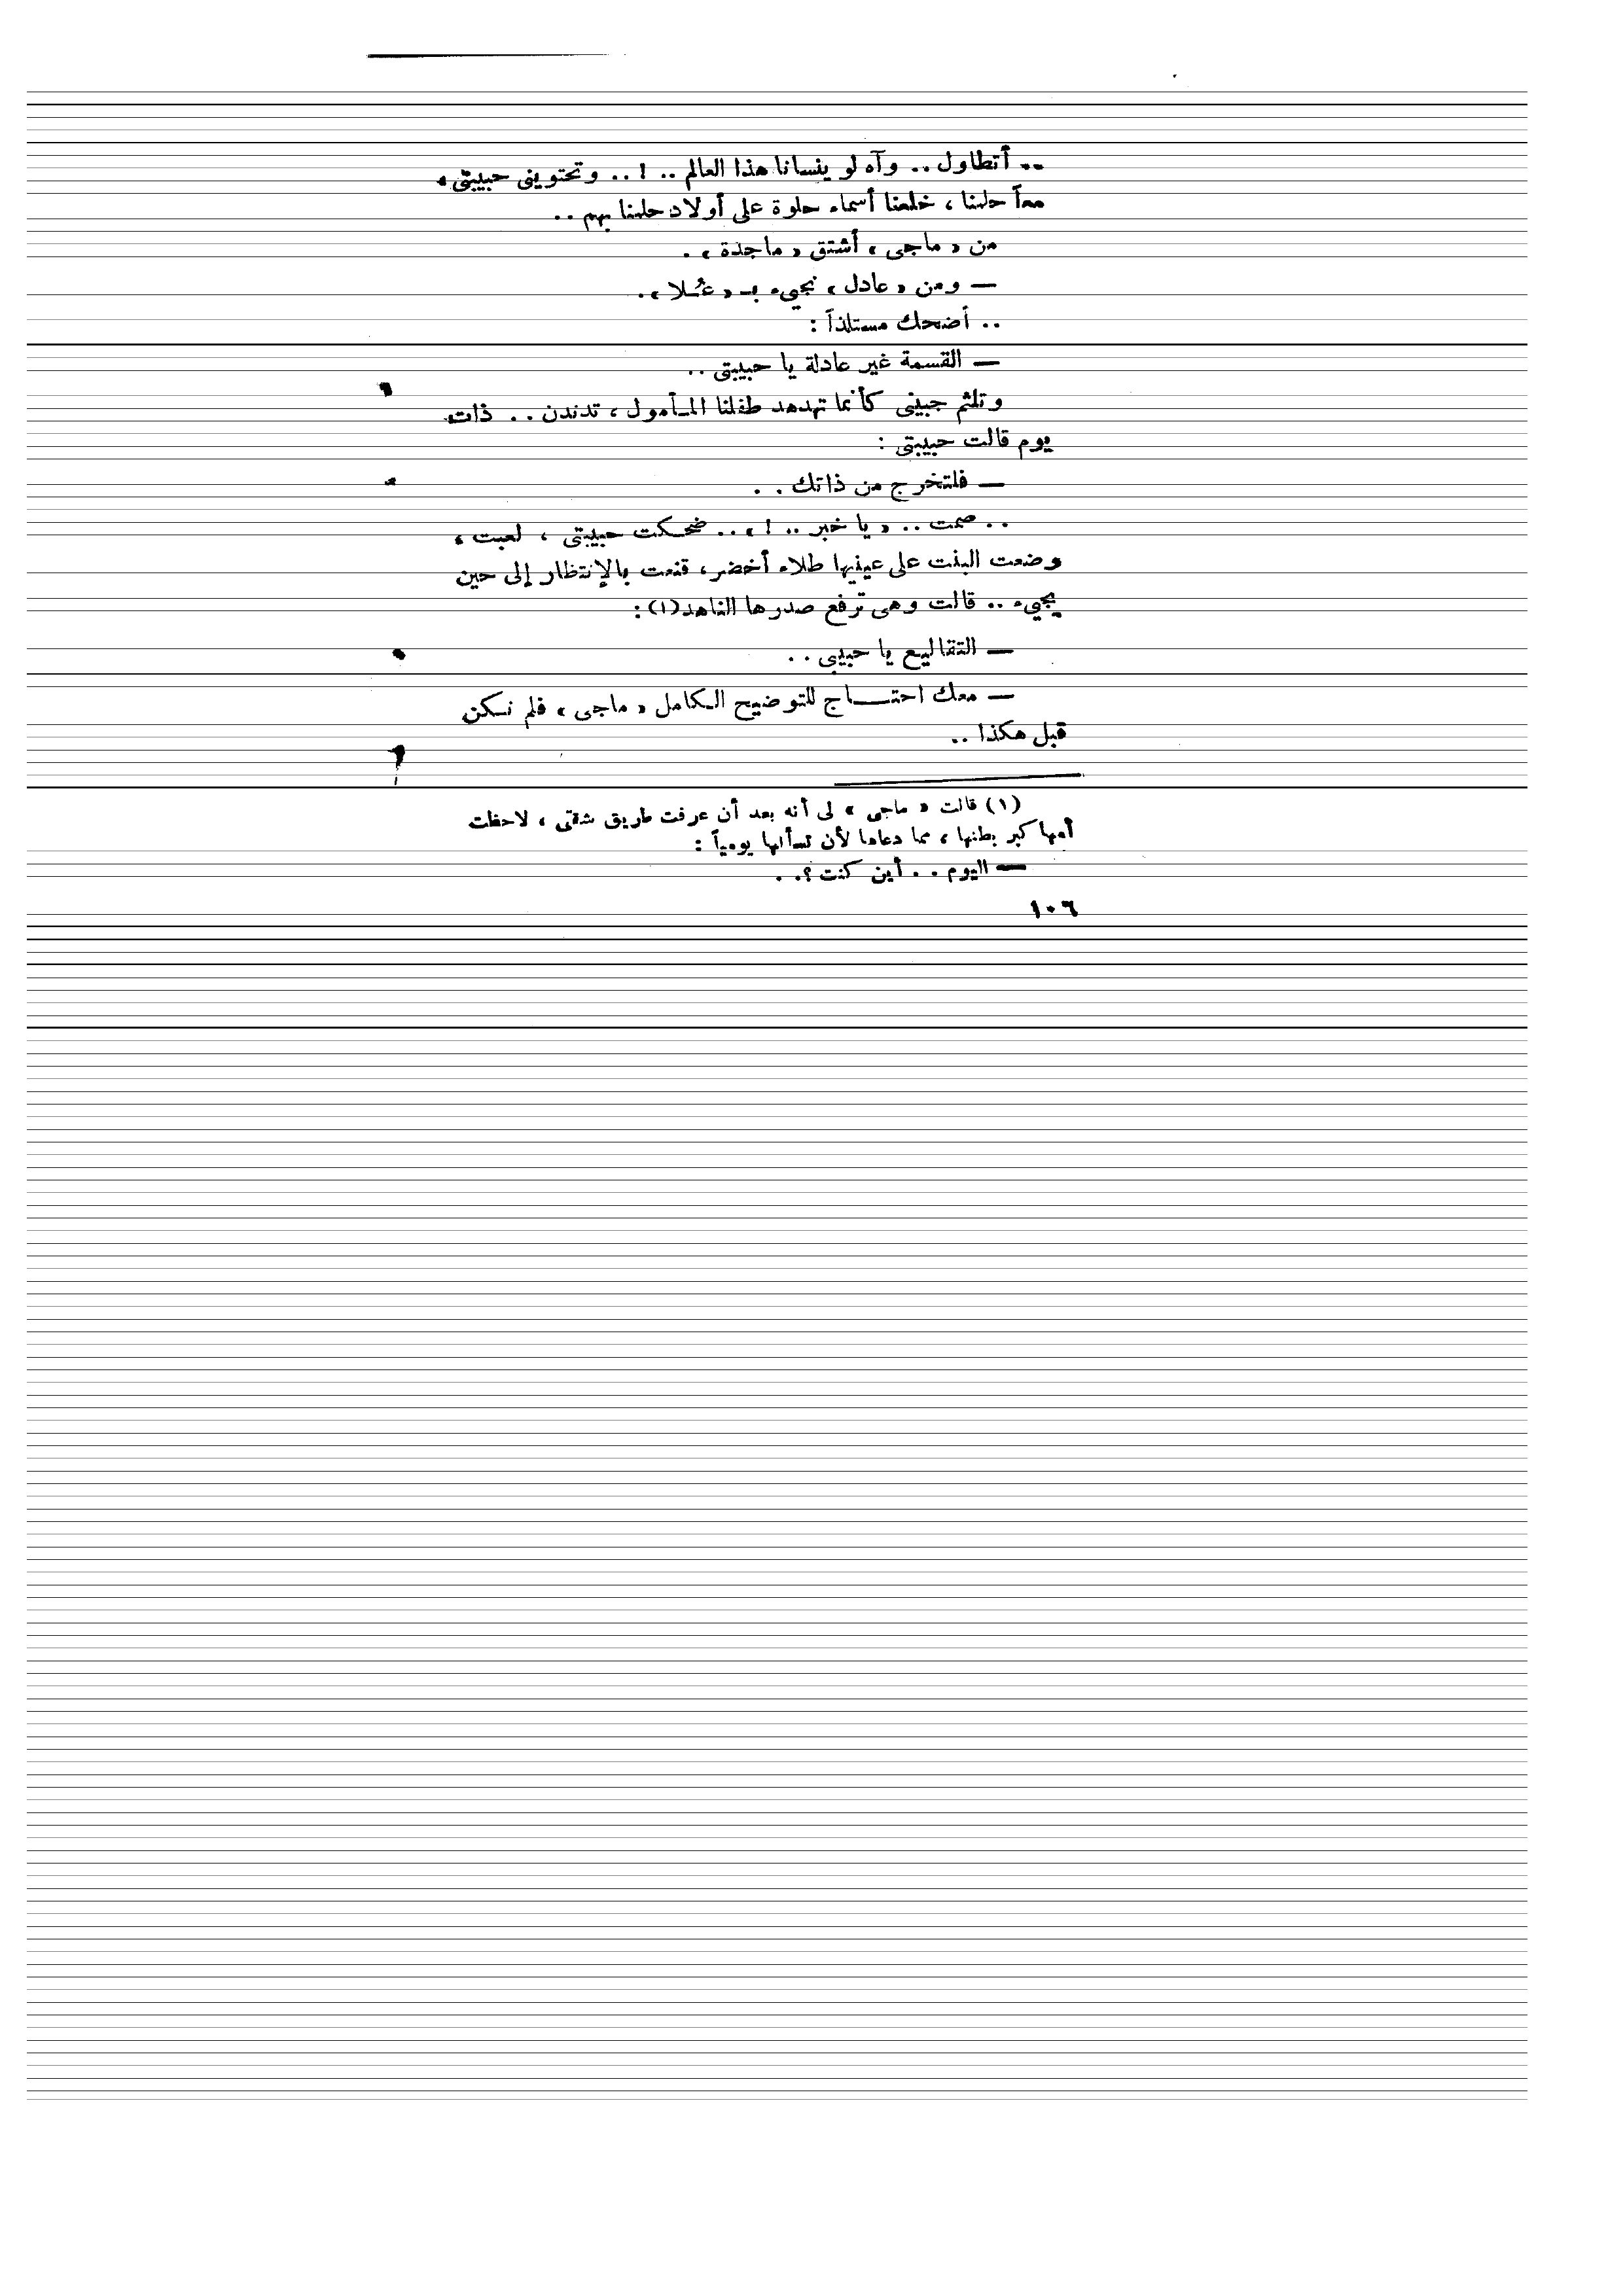 .. أتطاول .. وآه لو ينسانا هذا العالم .. ! .. وتحتويني حبيبتى ،
معاً حلمنا ، خلعنا أسماء حلوة على أولاد حلمنا بهم ..
من « ماجى » أشتق « ماجدة » .
— ومن « عادل » نجيء بـ « عُلا » .
.. أضحك مستلذاً :
— القسمة غير عادلة يا حبيبتى ..
وتلثم جبينى كأنما تهدهد طفلنا المـأمول ، تدندن .. ذات
يوم قالت حبيبتى :
— فلتخرج من ذاتك . .
. . صمت .. « يا خبر .. ! » .. ضحـكت حبيبتى ، لعبت ،
وضعت البنت على عينيها طلاء أخضر ، قنعت بالإنتظار إلى حين
يجيء .. قالت وهى ترفع صدرها الناهد (١) :
— التقاليع يا حبيبى . .
— معك احتـــاج للتوضيح الـكامل « ماجى » فلم نـكن
قبل هكذا ..
(١) قالت « ماجى » لى أنه بعد أن عرفت طريق شقتى ، لاحظت
أمها كبر بطنها ، مما دعاها لأن تسألها يومياً :
— اليوم . . أين كنت ؟ . .
١٠٦